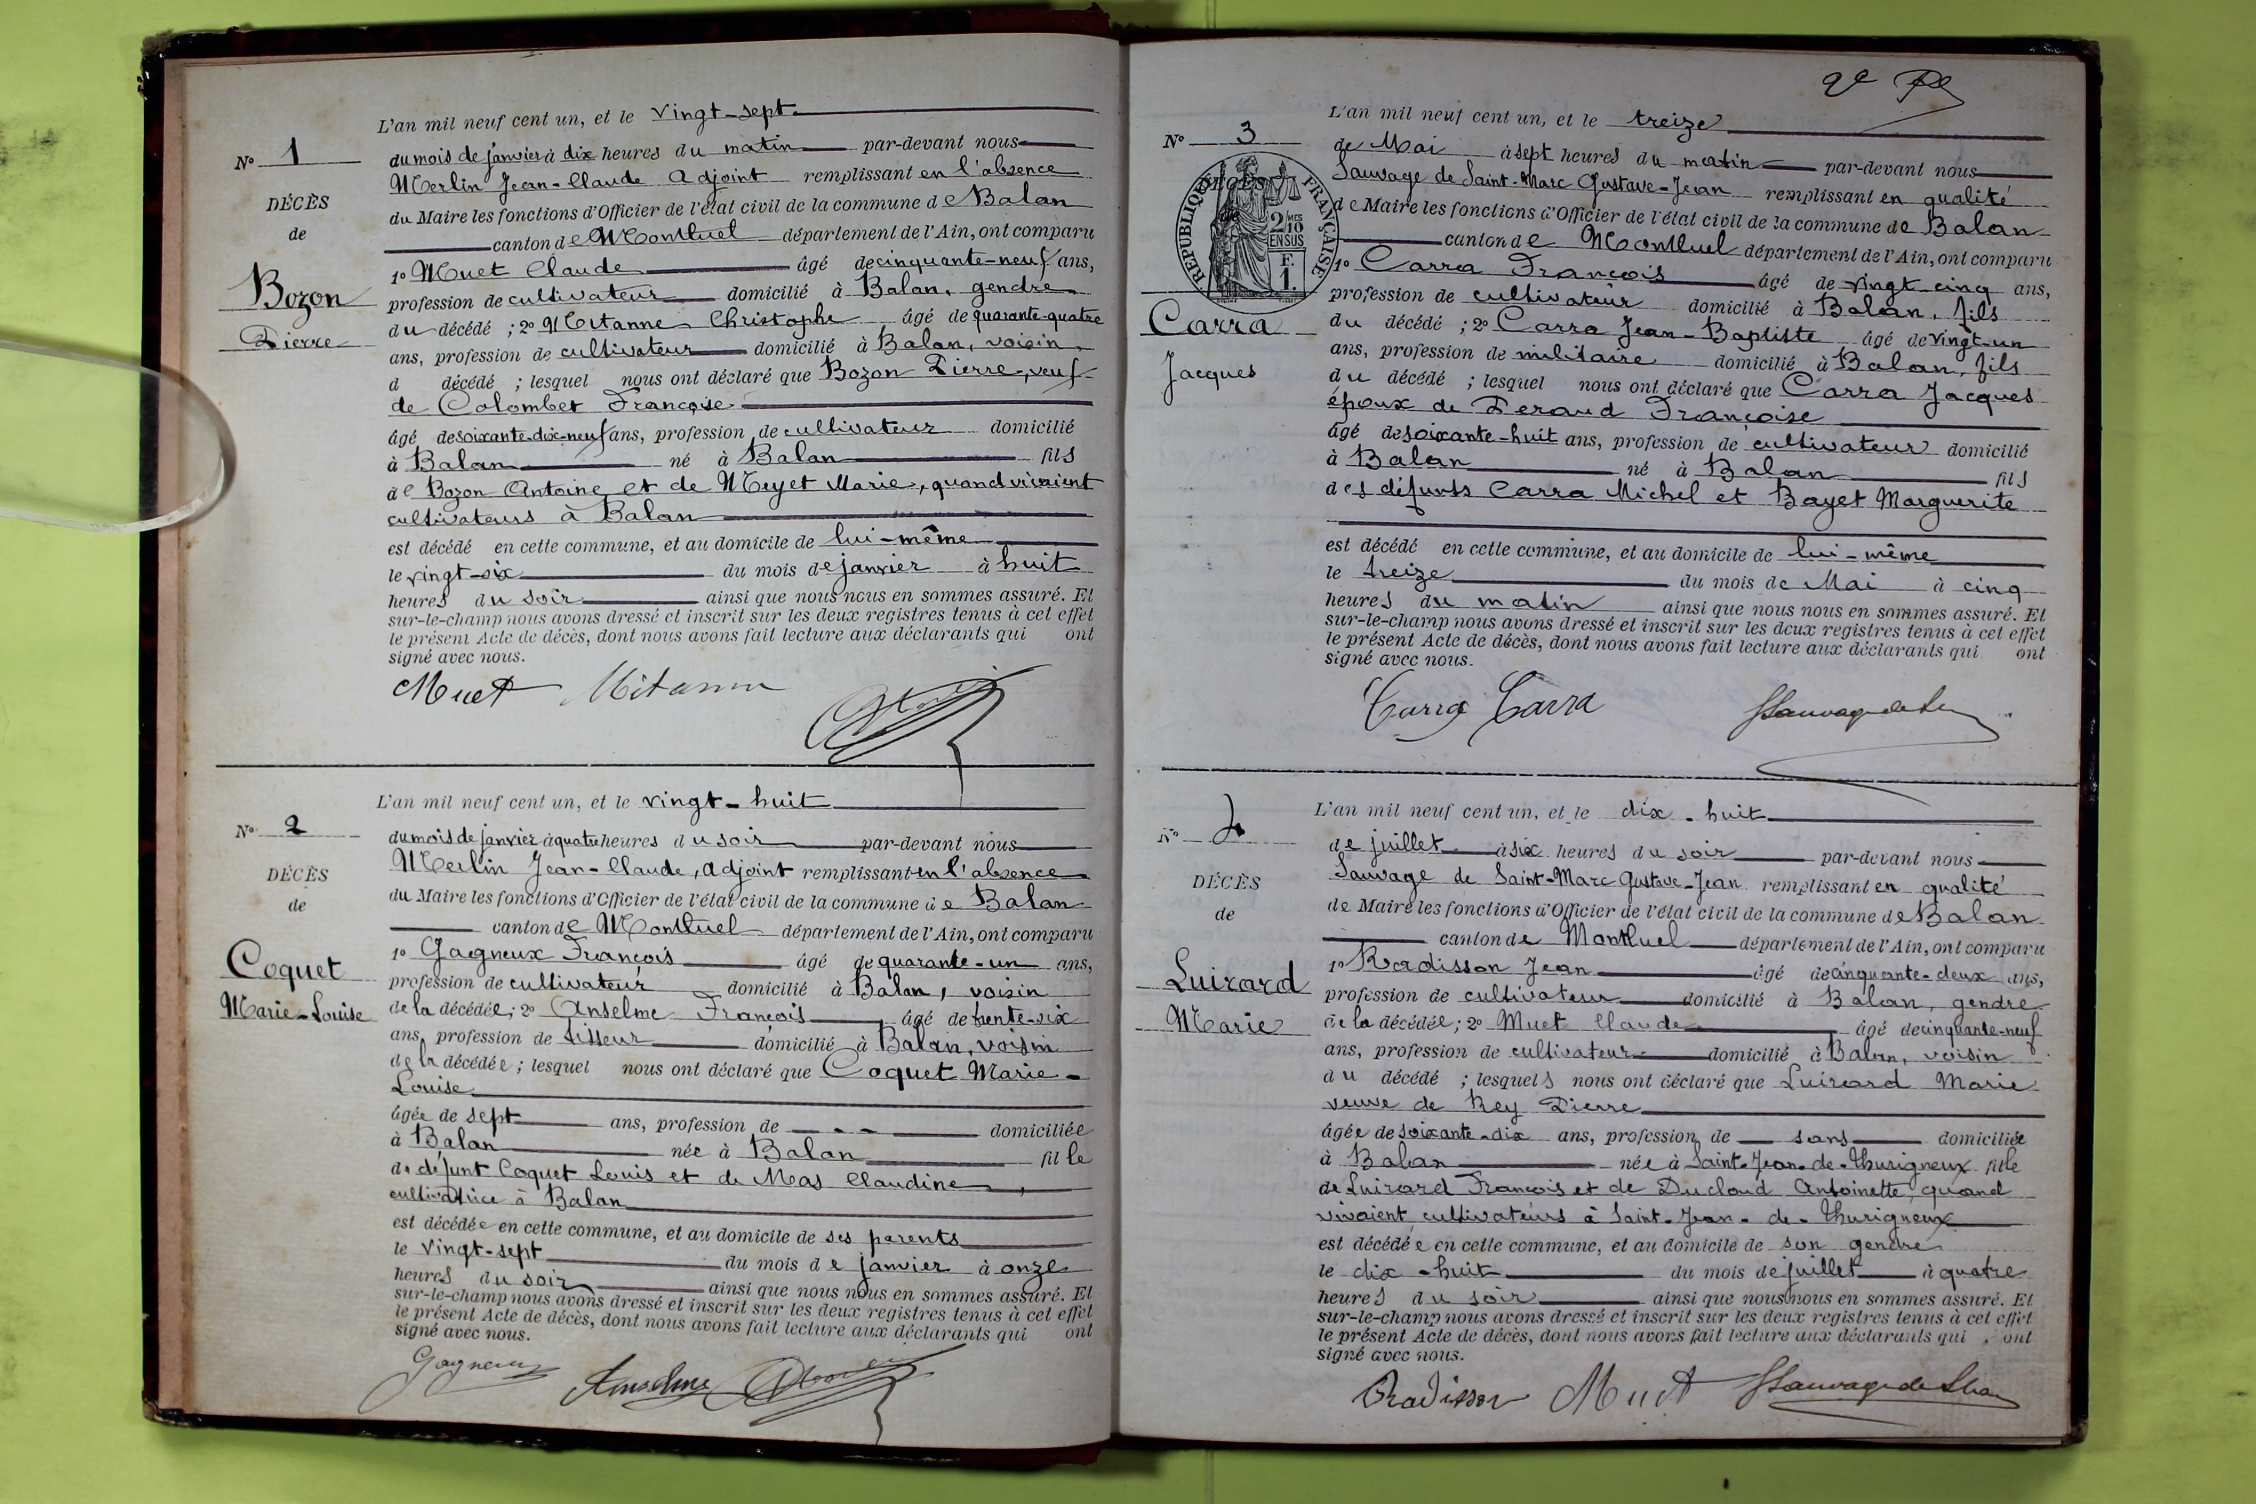 L'an mil neuf cent un, et le vingt-sept
Nº 1
du mois de janvier à dix heures du matin par-devant nous
Merlin Jean-Claude Adjoint remplissant en l'absence
DÉCÈS
du Maire les fonctions d'Officier de l'état civil de la commune de Balan
de
canton de Montluel département de l'Ain, ont comparu
1º Muet Claude âgé de cinquante-neuf ans,
Bozon
profession de cultivateur domicilié à Balan, gendre
du décédé ; 2º Mitanne Christophe âgé de quarante-quatre
Pierre
ans, profession de cultivateur domicilié à Balan, voisin
d décédé ; lesquel nous ont déclaré que Bozon Pierre, veuf
de Colomber Françoise
âgé de soixante-dix-neuf ans, profession de cultivateur domicilié
à Balan né à Balan fils
de Bozon Antoine et de Meyet Marie, quand vivaient
cultivateurs à Balan
est décédé en cette commune, et au domicile de lui-même
le vingt-six du mois de janvier à huit
heures du soir ainsi que nous nous en sommes assuré. Et
sur-le-champ nous avons dressé et inscrit sur les deux registres tenus à cet effet
le présent Acte de décès, dont nous avons fait lecture aux déclarants qui ont
signé avec nous.
Muet Mitanne
L'an mil neuf cent un, et le vingt-huit
Nº 2
du mois de janvier à quatre heures du soir par-devant nous
Merlin Jean-Claude, Adjoint remplissant en l'absence
DÉCÈS
du Maire les fonctions d'Officier de l'état civil de la commune de Balan
de
canton de Montluel département de l'Ain, ont comparu
1º Gagneux François âgé de quarante-un ans,
Coquet
profession de cultivateur domicilié à Balan, voisin
Marie-Louise
de la décédée ; 2º Anselme François âgé de trente-six
ans, profession de tisseur domicilié à Balan, voisin
de la décédée ; lesquel nous ont déclaré que Coquet Marie-
Louise
âgée de sept ans, profession de --- domiciliée
à Balan née à Balan fille
de défunt Coquet Louis et de Mas Claudine,
cultivatrice à Balan
est décédée en cette commune, et au domicile de ses parents
le vingt-sept du mois de janvier à onze
heures du soir ainsi que nous nous en sommes assuré. Et
sur-le-champ nous avons dressé et inscrit sur les deux registres tenus à cet effet
le présent Acte de décès, dont nous avons fait lecture aux déclarants qui ont
signé avec nous.
Gagneux Anselme
L'an mil neuf cent un, et le treize
Nº 3
de Mai à sept heures du matin par-devant nous
Sauvage de Saint-Marc Gustave-Jean remplissant en qualité
RÉPUBLIQUE FRANÇAISE
2 MES 10 EN SUS
F. 1.
de Maire les fonctions d'Officier de l'état civil de la commune de Balan
canton de Montluel département de l'Ain, ont comparu
1º Carra François âgé de vingt-cinq ans,
profession de cultivateur domicilié à Balan, fils
Carra
du décédé ; 2º Carra Jean-Baptiste âgé de vingt-un
ans, profession de militaire domicilié à Balan, fils
Jacques
du décédé ; lesquel nous ont déclaré que Carra Jacques
époux de Peraud Françoise
âgé de soixante-huit ans, profession de cultivateur domicilié
à Balan né à Balan fils
des défunts Carra Michel et Bayet Marguerite
est décédé en cette commune, et au domicile de lui-même
le treize du mois de Mai à cinq
heures du matin ainsi que nous nous en sommes assuré. Et
sur-le-champ nous avons dressé et inscrit sur les deux registres tenus à cet effet
le présent Acte de décès, dont nous avons fait lecture aux déclarants qui ont
signé avec nous.
Carra Carra Sauvage de St
L'an mil neuf cent un, et le dix-huit
Nº 4
de juillet à six heures du soir par-devant nous
Sauvage de Saint-Marc Gustave-Jean remplissant en qualité
DÉCÈS
de Maire les fonctions d'Officier de l'état civil de la commune de Balan
de
canton de Montluel département de l'Ain, ont comparu
1º Radisson Jean âgé de cinquante-deux ans,
Luirard
profession de cultivateur domicilié à Balan, gendre
Marie
de la décédée ; 2º Muet Claude âgé de cinquante-neuf
ans, profession de cultivateur domicilié à Balan, voisin
du décédé ; lesquels nous ont déclaré que Luirard Marie
veuve de Rey Pierre
âgée de soixante-dix ans, profession de sans domiciliée
à Balan née à Saint-Jean-de-Thurigneux fille
de Luirard François et de Ducloud Antoinette, quand
vivaient, cultivateurs à Saint-Jean-de-Thurigneux
est décédée en cette commune, et au domicile de son gendre
le dix-huit du mois de juillet à quatre
heures du soir ainsi que nous nous en sommes assuré. Et
sur-le-champ nous avons dressé et inscrit sur les deux registres tenus à cet effet
le présent Acte de décès, dont nous avons fait lecture aux déclarants qui ont
signé avec nous.
Radisson Muet Sauvage de St Marc